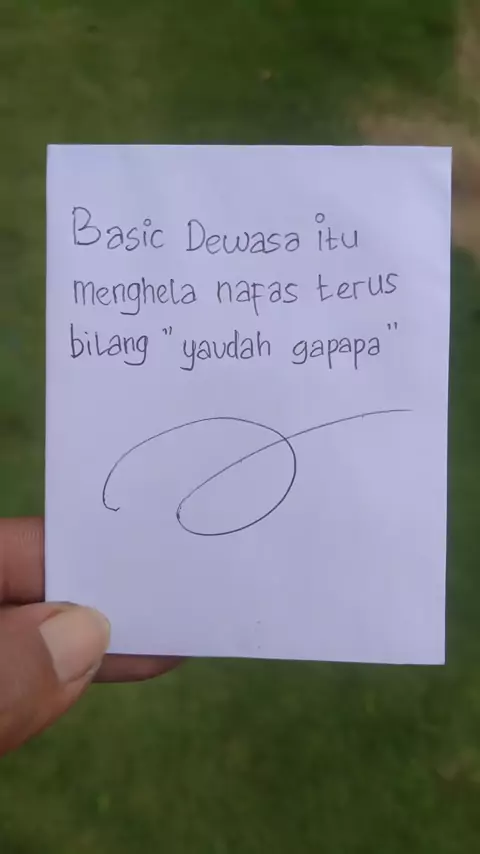 Basic Dewasa itu
menghela nafas terus
bilang "yaudah gapapa"